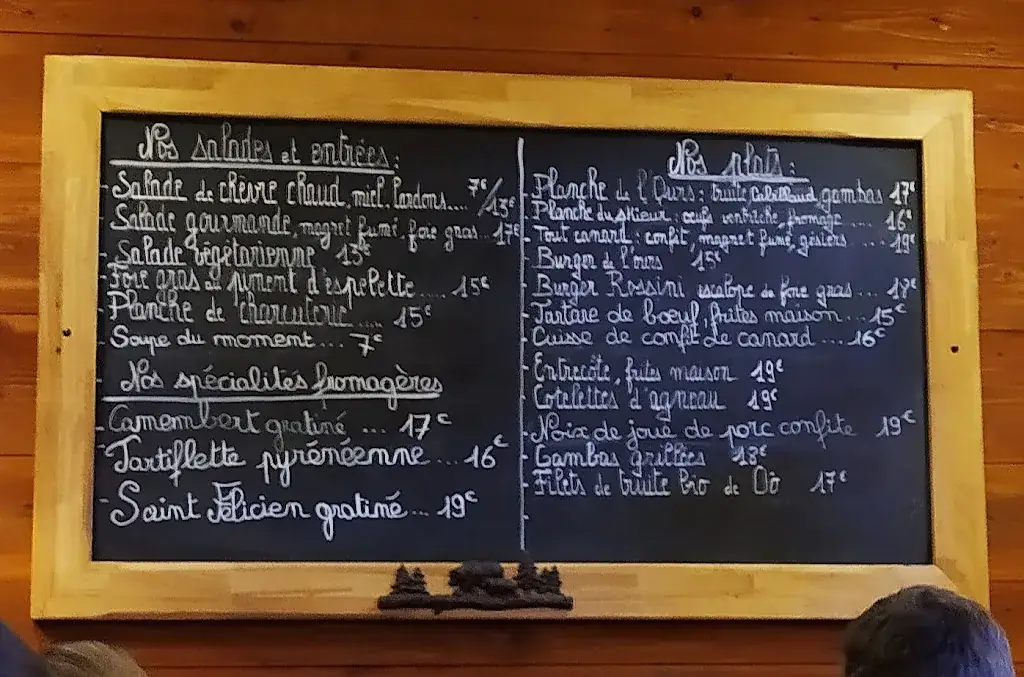 Nos salades et entrées :
- Salade de chèvre chaud, miel, lardons.... 7€/13€
- Salade gourmande, magret fumé, foie gras.. 17€
- Salade végétarienne 15€
- Foie gras au piment d'espelette .... 15€
- Planche de charcuterie .... 15€
- Soupe du moment... 7€
Nos spécialités fromagères
- Camembert gratiné ... 17€
- Tartiflette pyrénéenne... 16€
- Saint Félicien gratiné... 19€
Nos plats :
- Planche de l'Ours : truite, cabillaud, gambas 17€
- Planche du skieur : œufs ventrèche, fromage .... 16€
- Tout canard : confit, magret fumé, gésiers .... 19€
- Burger de l'ours 15€
- Burger Rossini escalope de foie gras ...
- Tartare de bœuf, frites maison... 15€
- Cuisse de confit de canard ... 16€
- Entrecôte, frites maison 19€
- Cotelettes d'agneau 19€
- Noix de joue de porc confite 19€
- Gambas grillées 18€
- Filets de truite bio de Oô 17€